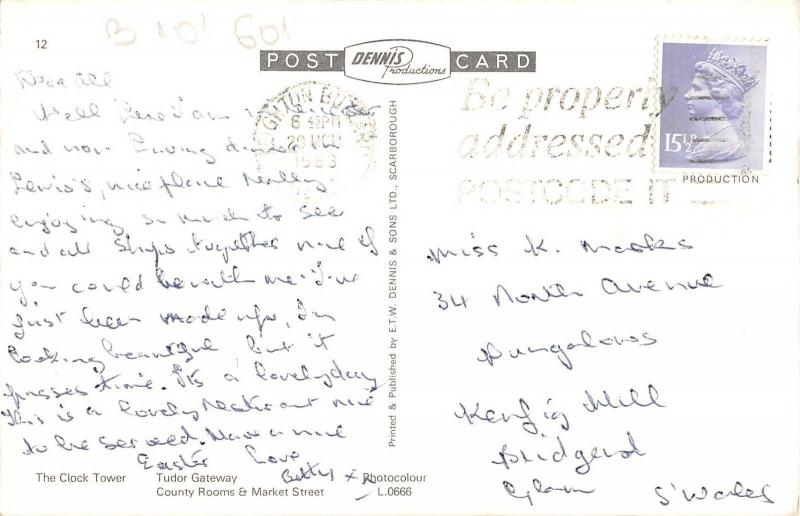 B 101 601
12
POST DENNIS Productions CARD
Dear All
Well here I am in Leicester
and now having dinner
Lewis's, nice place Really
enjoying so much to see
and all shops together nice if
you could be with me. I've
just been made up, I'm
looking beautiful but it
passes time. It's a lovely day
This is a lovely Resturant nice
to be served. Have a nice
Easter Love
Betty x
BUZZARD
6 PM
1983
Be properly
addressed
POSTCODE IT
15½P
PRODUCTION
Printed & Published by E.T.W. DENNIS & SONS LTD., SCARBOROUGH
Miss K. Marks
34 North Avenue
Bungalows
Kenfig Hill
Bridgend
Glam S'Wales
The Clock Tower Tudor Gateway Photocolour
County Rooms & Market Street L.0666